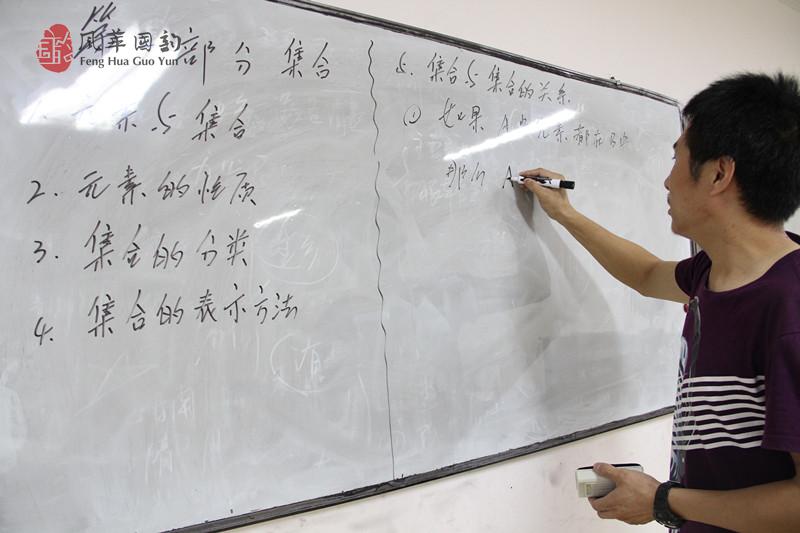 風華國韵
Feng Hua Guo Yun
部分 集合
与集合
2. 元素的性质
3. 集合的分类
4. 集合的表示方法
5. 集合与集合的关系
① 如果 A 中元素都在B中
那么 A